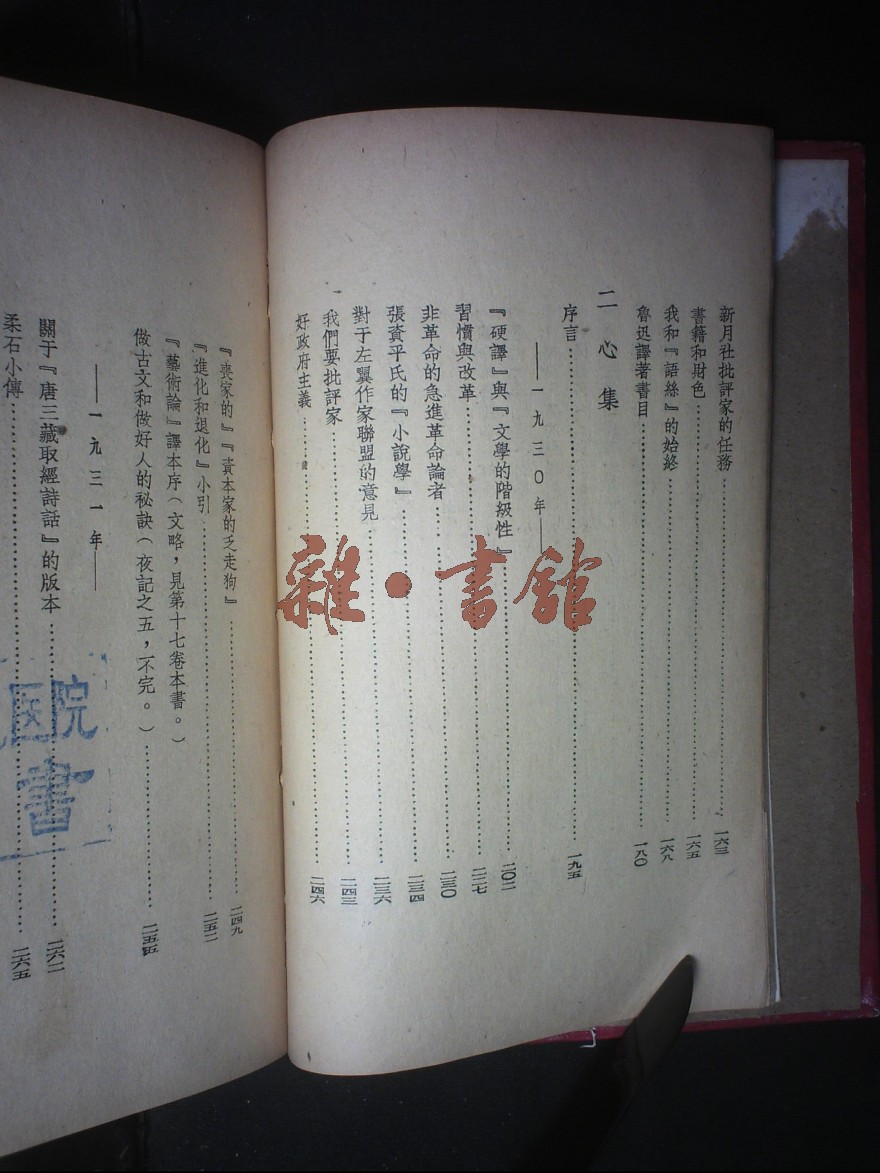 新月社批評家的任務……一六三
書籍和財色……一六五
我和『語絲』的始終……一六八
魯迅譯著書目……一八〇
二心集
序言……一九五
——一九三〇年——
『硬譯』與『文學的階級性』……二〇二
習慣與改革……二二七
非革命的急進革命論者……二三〇
張資平氏的『小說學』……二三四
對于左翼作家聯盟的意見……二三六
我們要批評家……二四三
好政府主義……二四六
『喪家的』『資本家的乏走狗』……二四九
『進化和退化』小引……二五二
『藝術論』譯本序（文略，見第十七卷本書。）
做古文和做好人的秘訣（夜記之五，不完。）……二五五
——一九三一年——
關于『唐三藏取經詩話』的版本……二六二
柔石小傳……二六五
雜·書館
医院
書